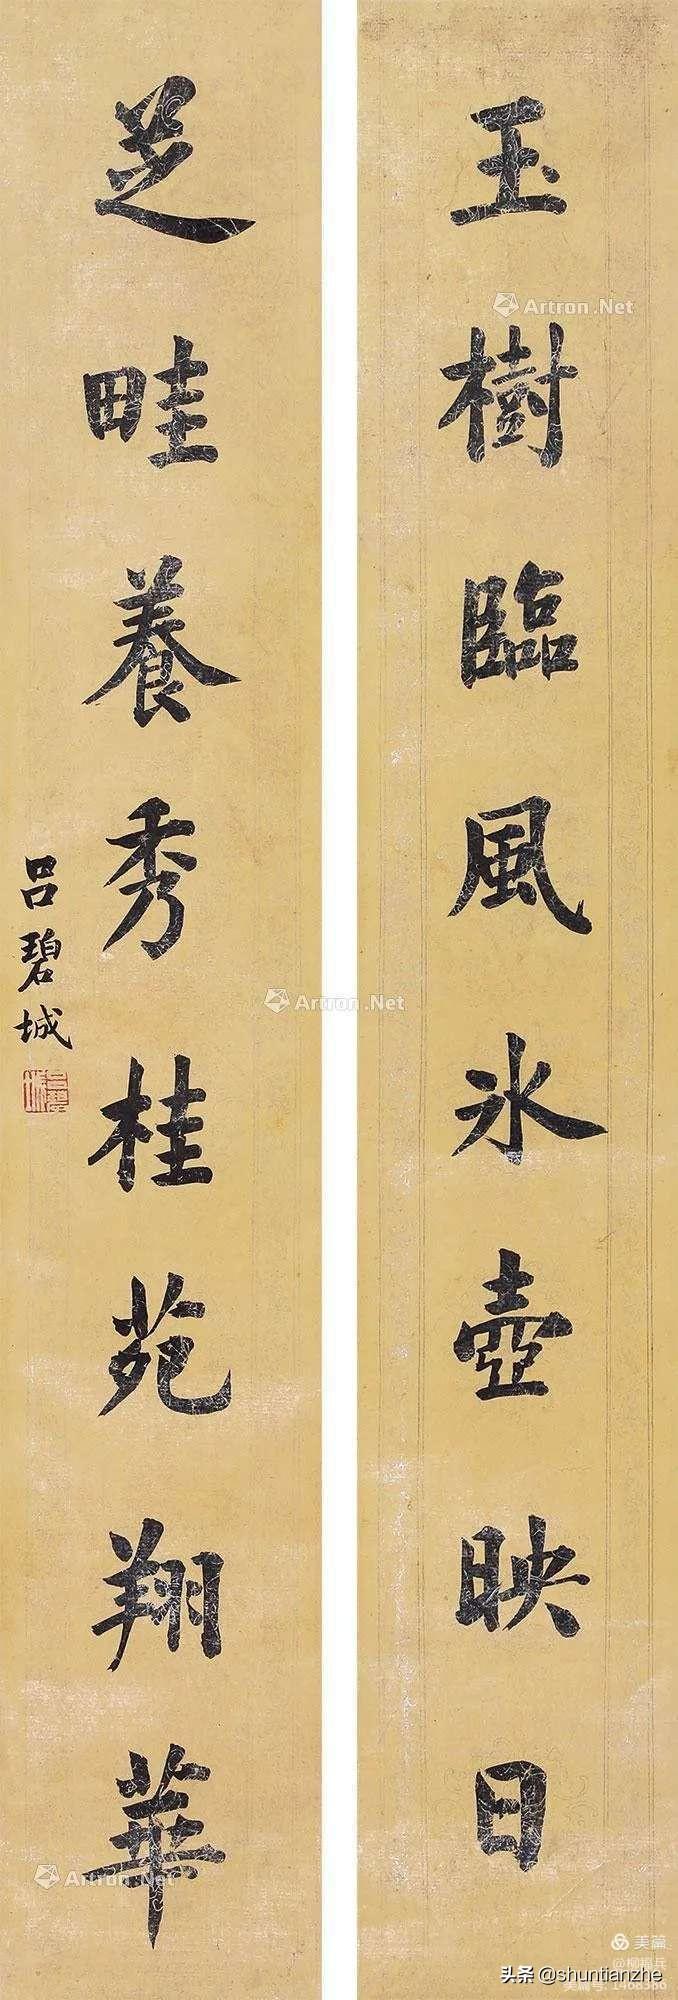 玉樹臨風冰壺映日
芝畦養秀桂苑翔華
吕碧城
Artron.Net
Artron.Net
Artron.Net
美篇
头条 @shuntianzhe